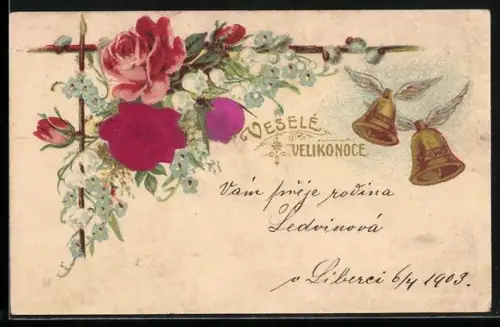 VESELÉ
VELIKONOCE
Vám přeje rodina
Ledvinová
v Liberci 6/4 1903.